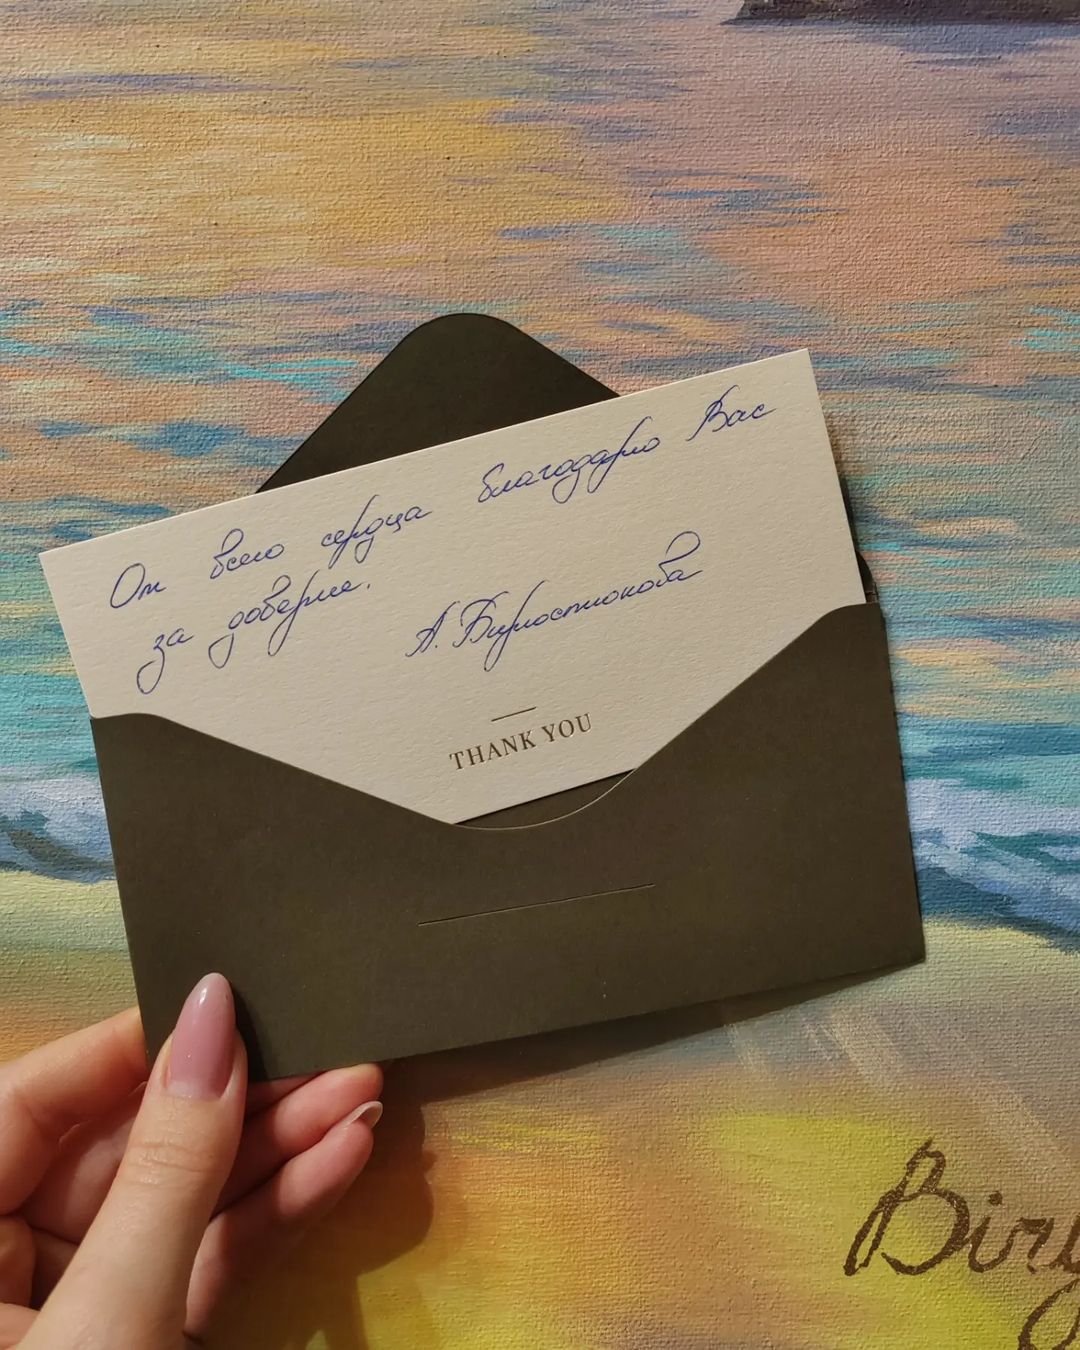 От всего сердца благодарю Вас
за доверие.
А.
THANK YOU
Biry